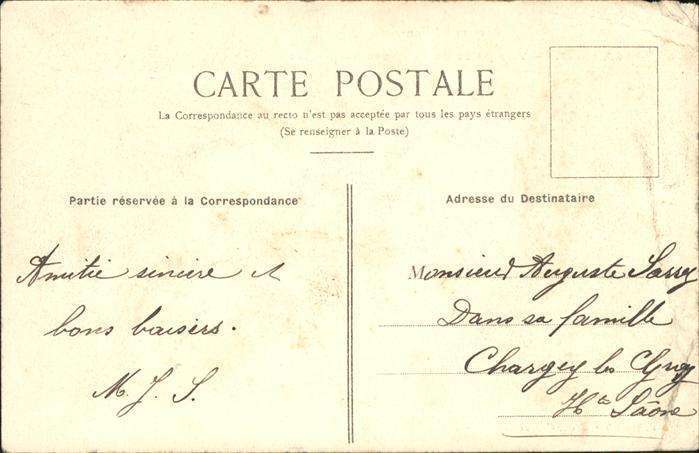 CARTE POSTALE
La Correspondance au recto n'est pas acceptée par tous les pays étrangers
(Se renseigner à la Poste)
Partie réservée à la Correspondance
Amitié sincère et
bons baisers.
M. J. S.
Adresse du Destinataire
Monsieur Auguste
Dans sa famille
Chargey les Gray
Hte Saône